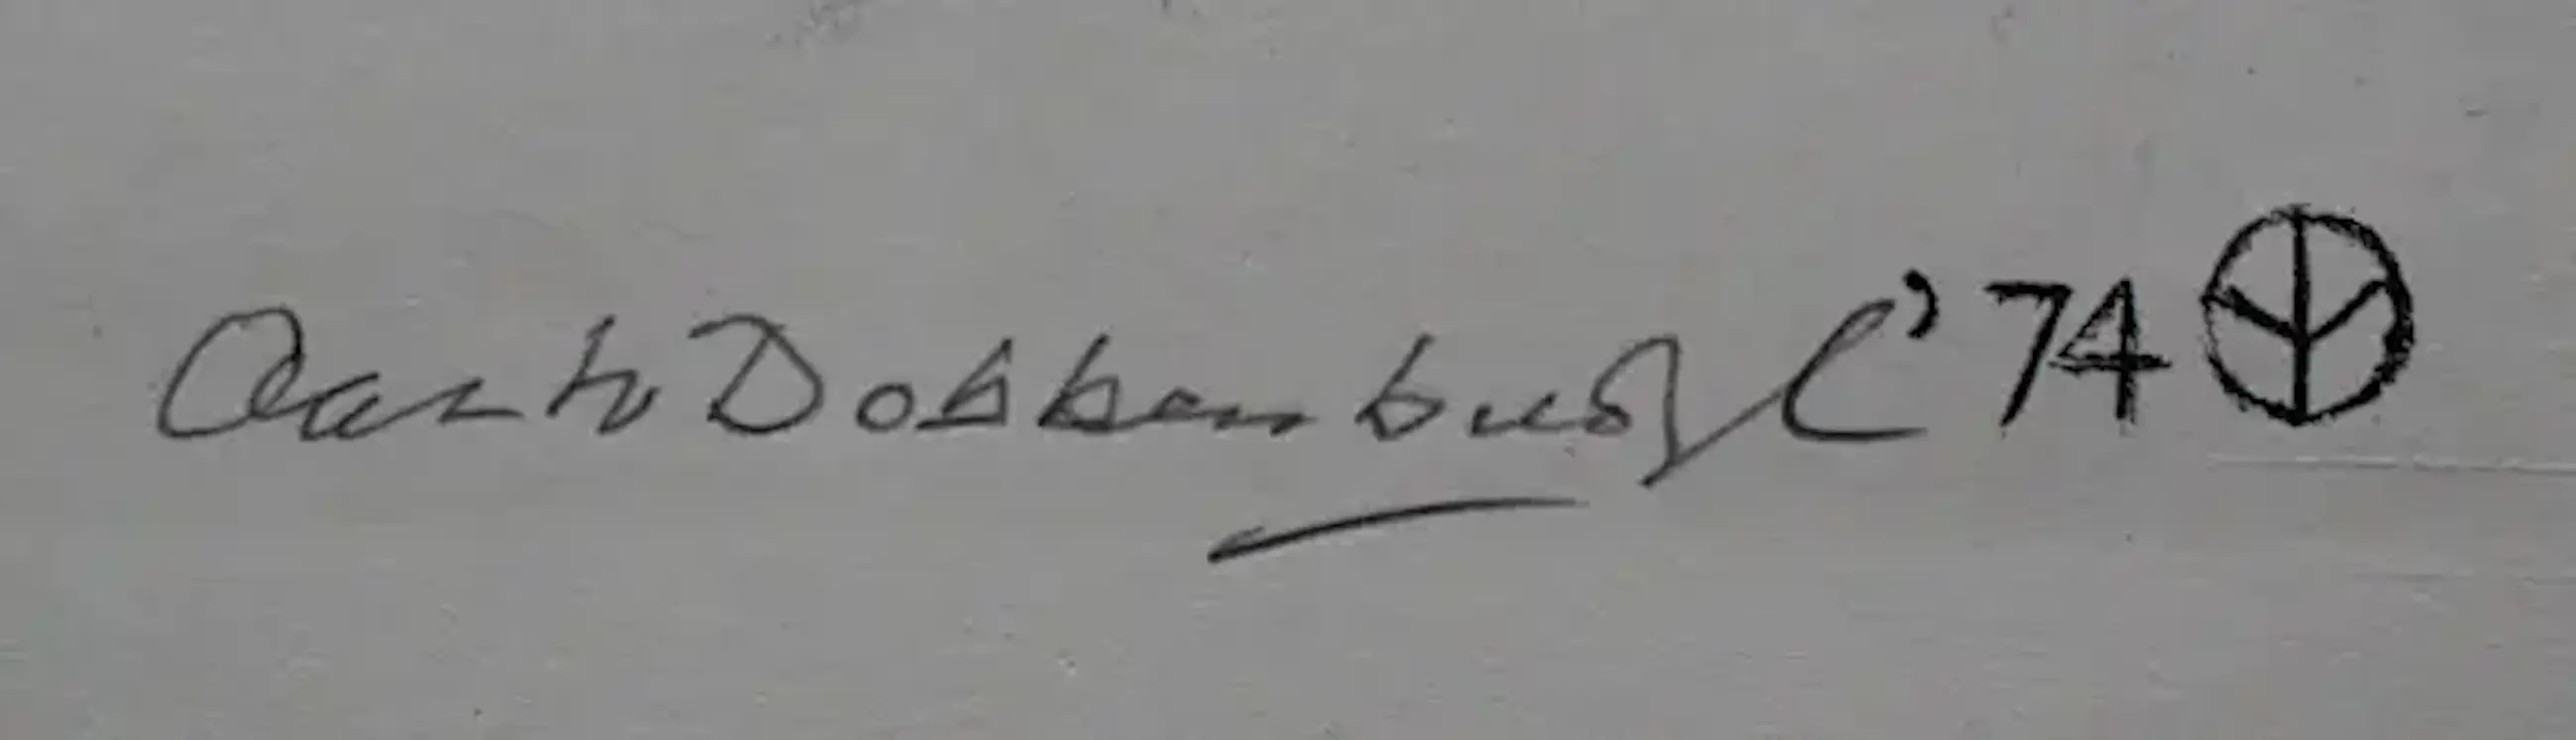 Aart v Dobbenburgh '74